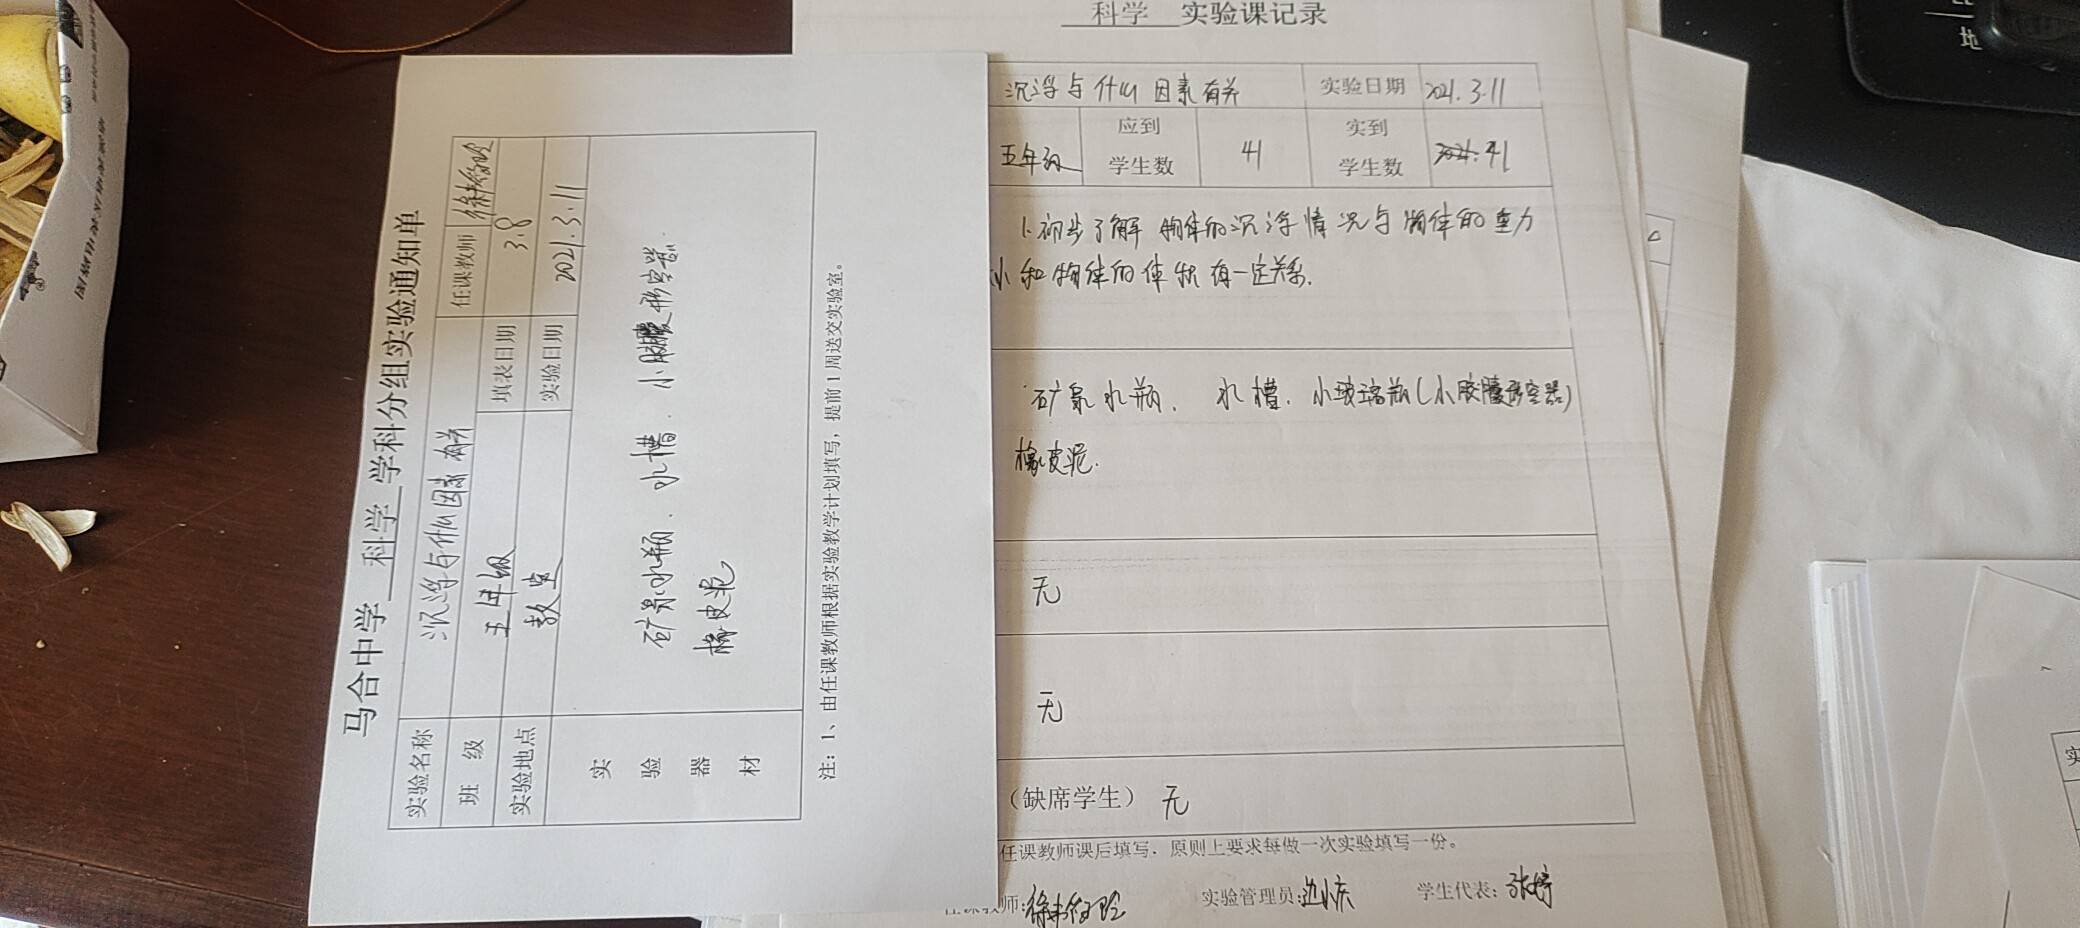 马合中学 科学 学科分组实验通知单
实验名称 沉浮与什么因素有关 任课教师
班 级 五年级 填表日期 3.8
实验地点 教室 实验日期 2021.3.11
实验器材 矿泉水瓶、水槽、小胶
橡皮泥
注：1、由任课教师根据实验教学计划填写，提前1周送交实验室。
科学 实验课记录
沉浮与什么因素有关 实验日期 2021.3.11
五年级 应到学生数 41 实到学生数 41
1.初步了解物体的沉浮情况与物体的重力
小和物体的体积有一定关系.
矿泉水瓶、水槽、小玻璃瓶(小胶 容器)
橡皮泥.
无
无
（缺席学生） 无
任课教师课后填写．原则上要求每做一次实验填写一份。
任课教师: 实验管理员: 学生代表: 张婷
地